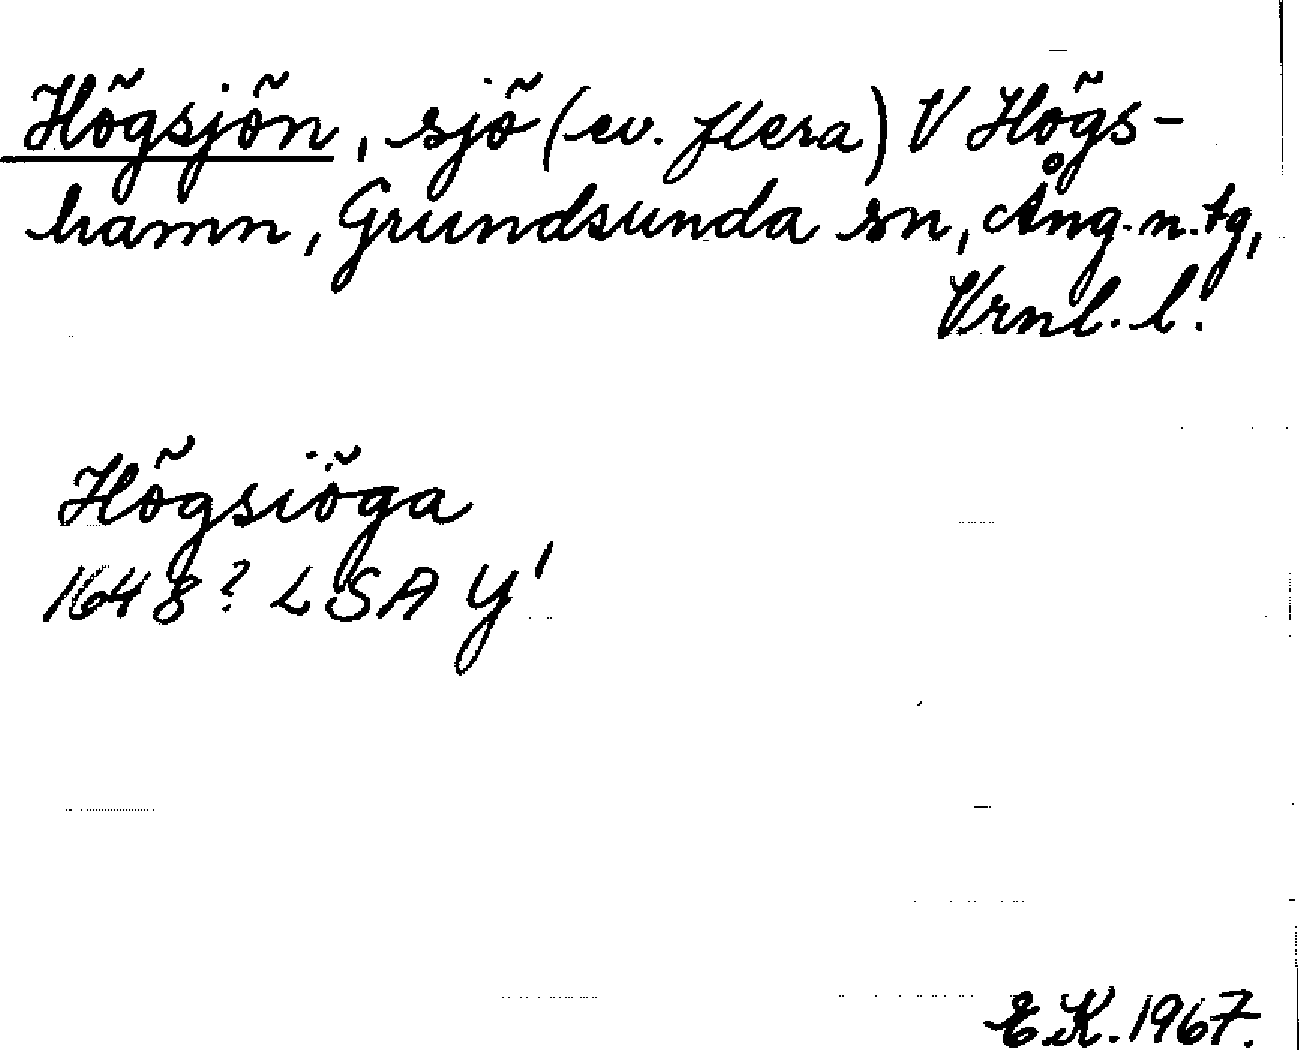 Högsjön, sjö (ev. flera) V Högs-
hamn, Grundsunda sn, Ång. n. tg,
Vrnl. l.
Högsiöga
1648? LSA Y'
E.K. 1967.